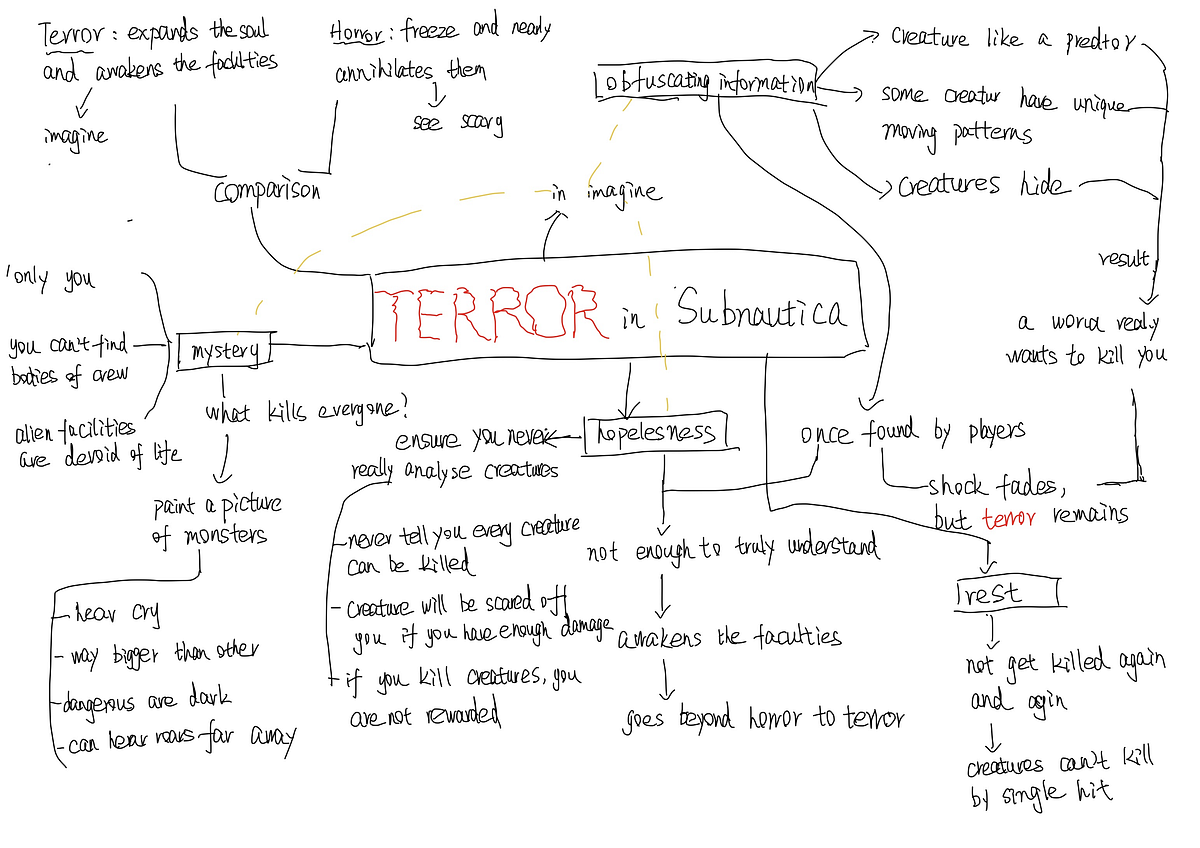 Terror : expands the soul
and awakens the faculties
imagine
Horror : freeze and nearly
annihilates them
see scary
comparison
obfuscating information
creature like a predtor
some creatur have unique
moving patterns
creatures hide
result
a world realy
wants to kill you
in imagine
TERROR in Subnautica
only you
you can't find
bodies of crew
alien facilities
are devoid of life
mystery
what kills everyone?
paint a picture
of monsters
hear cry
way bigger than other
dangerous are dark
can hear roars far away
hopelesness
ensure you never
really analyse creatures
never tell you every creature
can be killed
creature will be scared off
you if you have enough damage
if you kill creatures, you
are not rewarded
not enough to truly understand
awakens the faculties
goes beyond horror to terror
once found by players
shock fades,
but terror remains
rest
not get killed again
and agin
creatures can't kill
by single hit